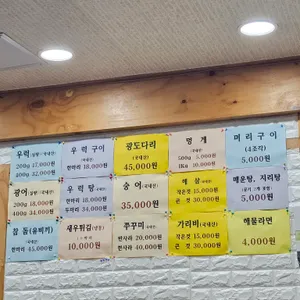 우럭(국내산)
200g 17,000원
400g 32,000원
우럭구이(국내산)
한마리 18,000원
광도다리
(국내산)
45,000원
멍게
(국내산)
500g 5,000원
1Kg 10,000원
머리구이
(4조각)
5,000원
광어(국내산)
200g 18,000원
400g 34,000원
우럭탕(국내산)
한마리 18,000원
두마리 34,000원
숭어(국내산)
35,000원
작은것 15,000원
큰것 30,000원
매운탕, 지리탕
5,000원
참돔(용비키)
한마리 45,000원
새우튀김(냉동)
10,000원
쭈꾸미
한사라 20,000원
반사라 40,000원
가리비(국내산)
작은것 15,000원
큰것 30,000원
해물라면
4,000원